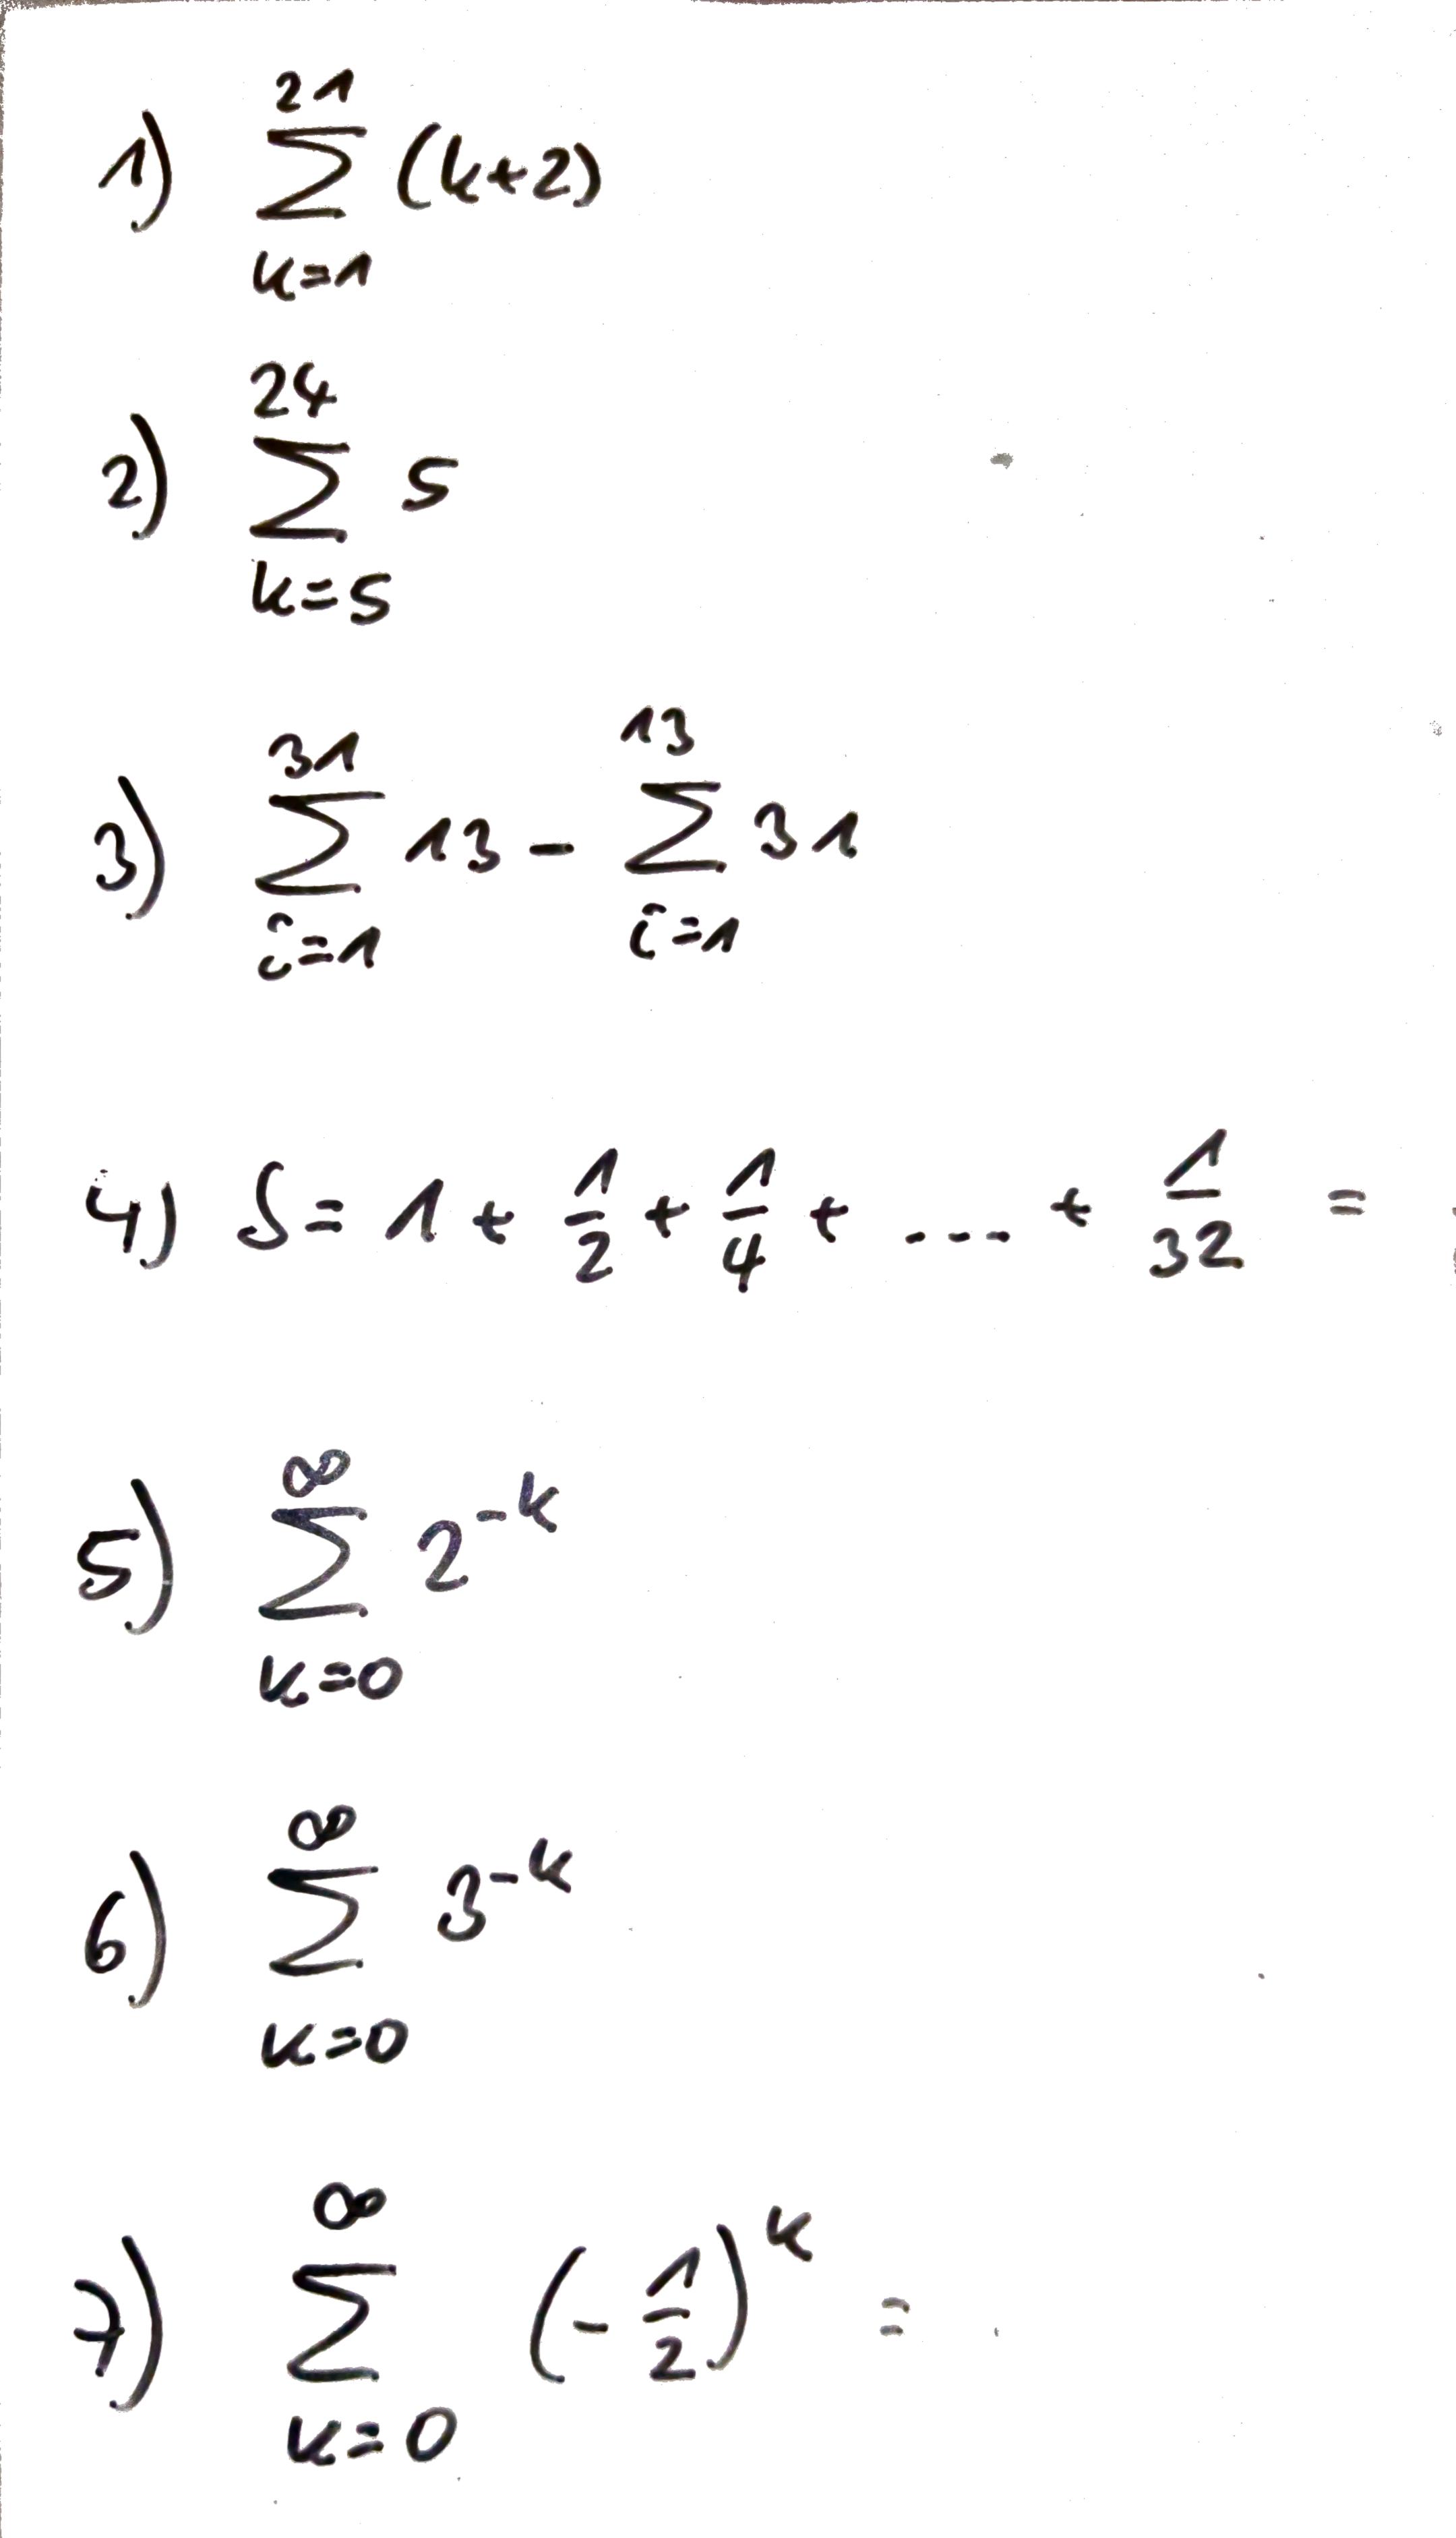 1) \sum_{k=1}^{21} (k+2)
2) \sum_{k=5}^{24} 5
3) \sum_{i=1}^{31} 13 - \sum_{i=1}^{13} 31
4) S = 1 + \frac{1}{2} + \frac{1}{4} + .... + \frac{1}{32} =
5) \sum_{k=0}^{\infty} 2^{-k}
6) \sum_{k=0}^{\infty} 3^{-k}
7) \sum_{k=0}^{\infty} (-\frac{1}{2})^{k} =